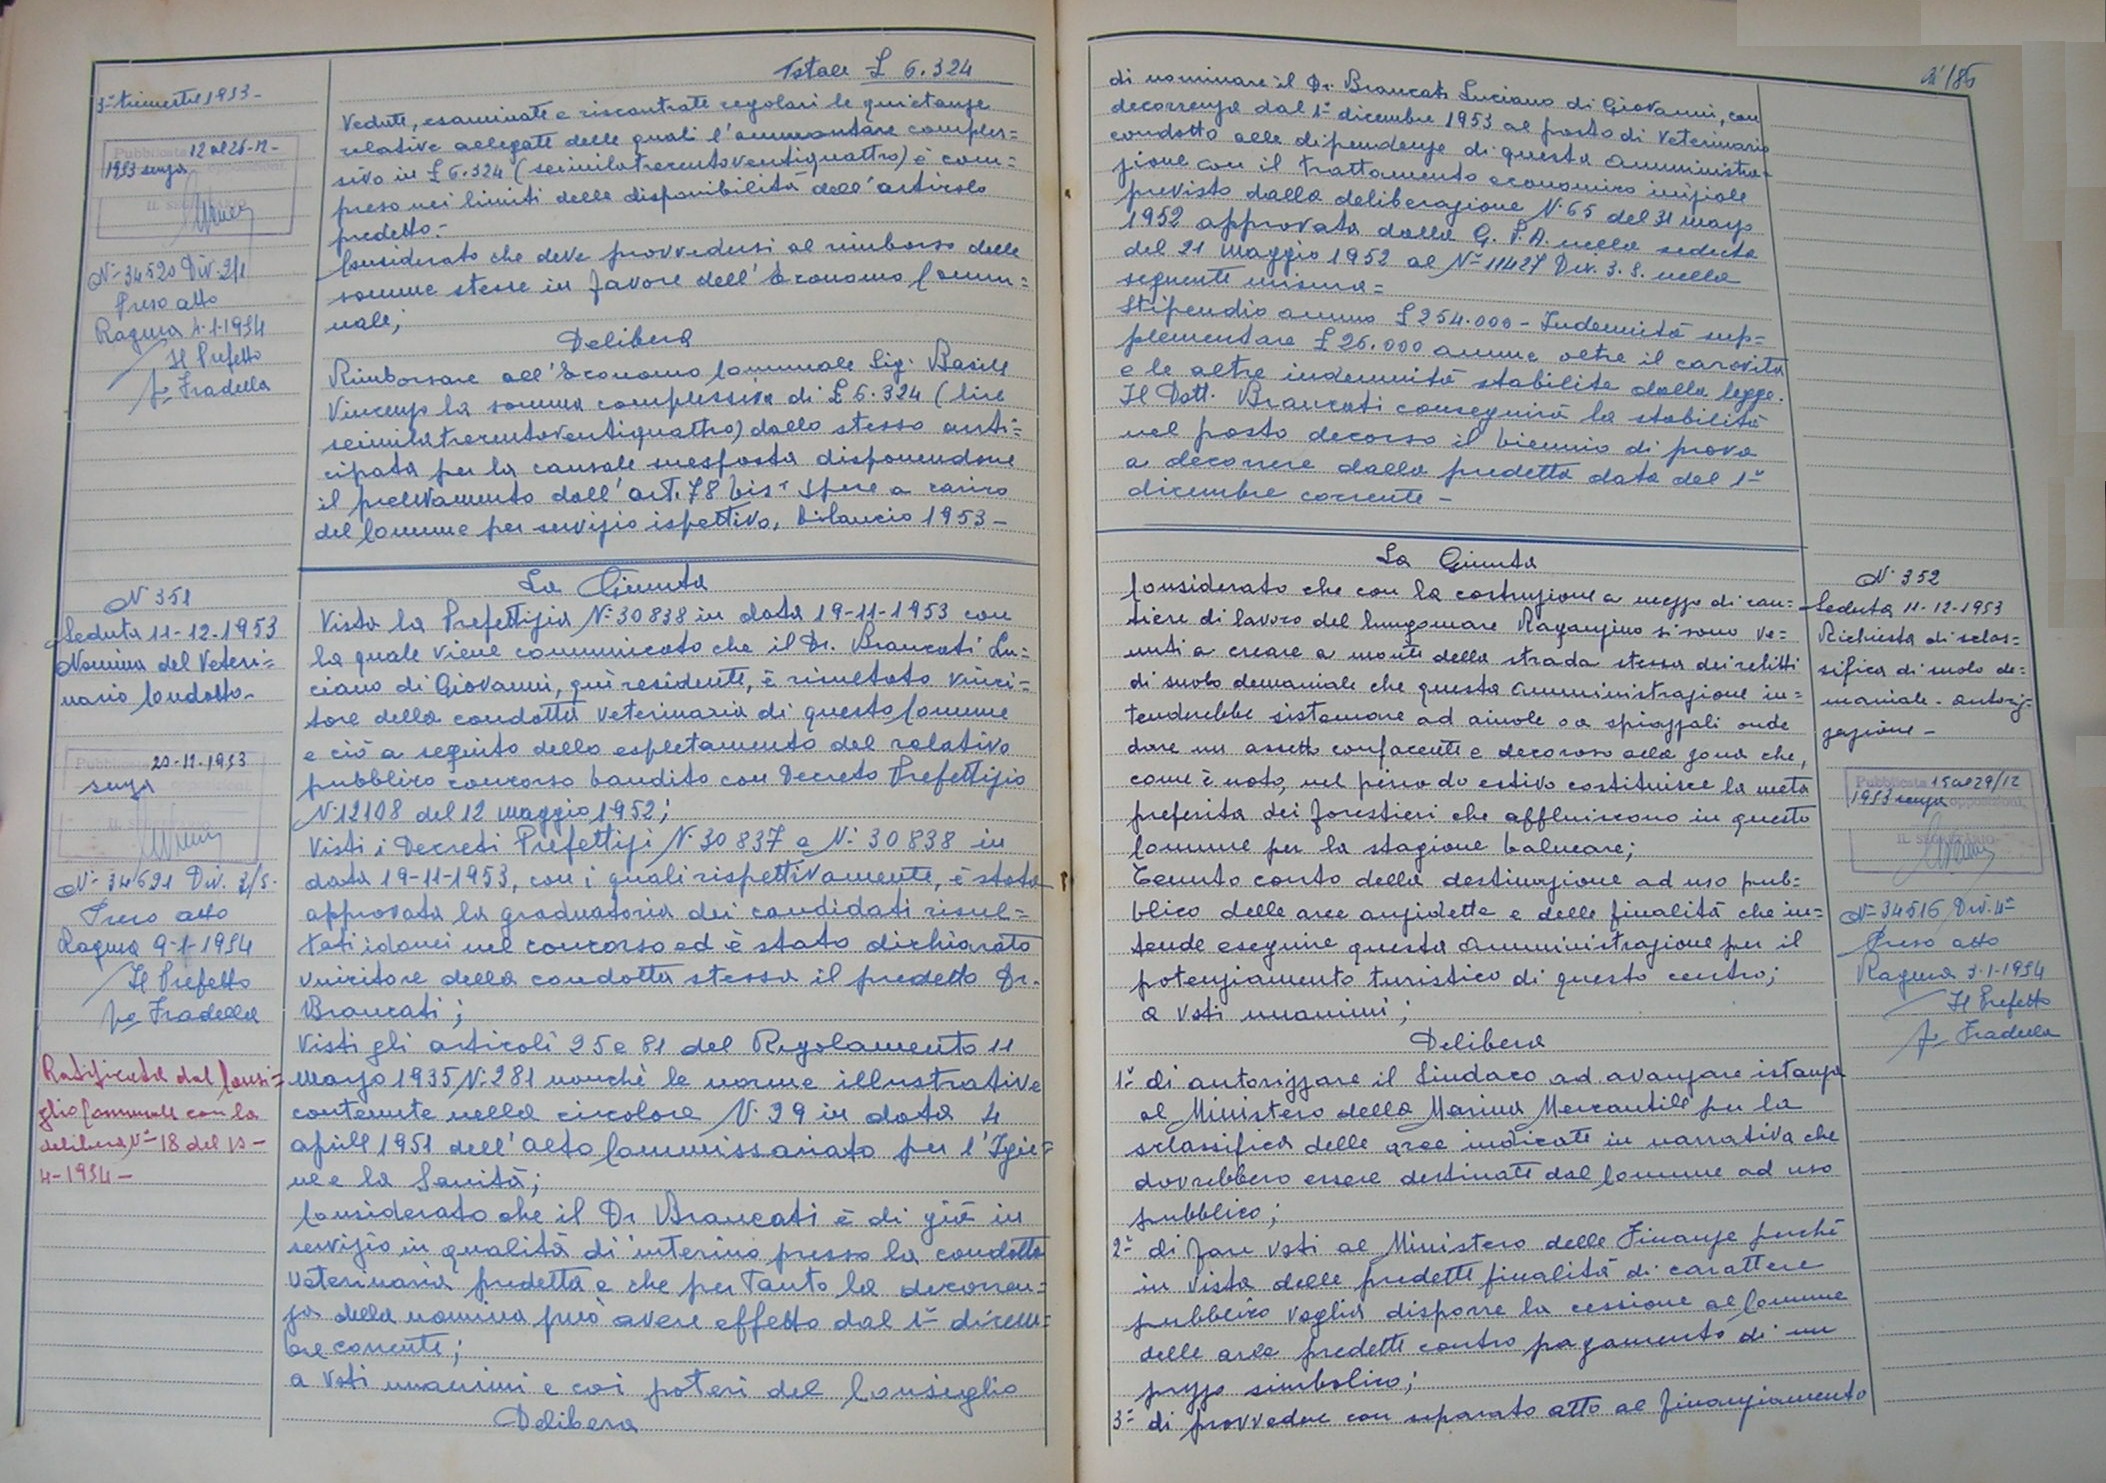 Totale £ 6.324
3º trimestre 1953-
Vedute, esaminate e riscontrate regolari le quietanze
relative allegate delle quali l'ammontare comples=
sivo in £ 6.324 (seimilatrecentoventiquattro) è com=
preso nei limiti delle disponibilità dell'articolo
predetto.-
Considerato che deve provvedersi al rimborso delle
somme stesse in favore dell'Economo Comu=
nale;
Delibera
Rimborsare all'Economo Comunale Sig. Basile
Vincenzo la somma complessiva di £ 6.324 (lire
seimilatrecentoventiquattro) dallo stesso anti=
cipata per la causale suesposta disponendone
il prelevamento dall'art. 78 bis: Spese a carico
del Comune per servizio ispettivo, bilancio 1953-
Pubblicata 12 al 26-12-
1953 senza opposizioni
IL SEGRETARIO
Nº 34520 Div. 2/1
Preso atto
Ragusa 4-1-1954
Il Prefetto
Fradella
Nº 351
Seduta 11-12-1953
Nomina del Veteri=
nario Condotto-
Pubblicata 20-12-1953
senza opposizioni
IL SEGRETARIO
Nº 34691 Div. 3/S.
Preso atto
Ragusa 9-1-1954
Il Prefetto
Fradella
Ratificata dal Consi=
glio Comunale con la
delibera Nº 18 del 10-
4-1954-
La Giunta
Vista la Prefettizia Nº 30838 in data 19-11-1953 con
la quale viene comunicato che il Dr. Brancati Lu=
ciano di Giovanni, quì residente, è risultato vinci=
tore della condotta Veterinaria di questo Comune
e ciò a seguito dello espletamento del relativo
pubblico concorso bandito con Decreto Prefettizio
Nº 12108 del 12 maggio 1952;
Visti i Decreti Prefettizi Nº 30837 e Nº 30838 in
data 19-11-1953, con i quali rispettivamente, è stata
approvata la graduatoria dei candidati risul=
tati idonei nel concorso ed è stato dichiarato
vincitore della condotta stessa il predetto Dr.
Brancati;
Visti gli articoli 25 e 81 del Regolamento 11
Marzo 1935 Nº 281 nonchè le norme illustrative
contenute nella circolare Nº 29 in data 4
aprile 1951 dell'Alto Commissariato per l'Igie=
ne e la Sanità;
Considerato che il Dr Brancati è di già in
servizio in qualità di interino presso la condotta
Veterinaria predetta e che per tanto la decorren=
za della nomina può avere effetto dal 1º dicem=
bre corrente;
a voti unanimi e coi poteri del Consiglio
Delibera
di nominare il Dr. Brancati Luciano di Giovanni, con
decorrenza dal 1º dicembre 1953 al posto di Veterinario
condotto alle dipendenze di questa Amministra=
zione con il trattamento economico iniziale
previsto dalla deliberazione Nº 65 del 31 marzo
1952 approvata dalla G.P.A. nella seduta
del 21 Maggio 1952 al Nº 11427 Div. 3. S. nella
seguente misura=
Stipendio annuo £ 254.000- Indennità sup=
plementare £ 26.000 annue oltre il carovita
e le altre indennità stabilite dalla legge.
Il Dott. Brancati conseguirà la stabilità
nel posto decorso il biennio di prova
a decorrere dalla predetta data del 1º
dicembre corrente-
La Giunta
Considerato che con la costruzione a mezzo di can=
tiere di lavoro del lungomare Raganzino si sono ve=
nuti a creare a monte della strada stessa dei relitti
di suolo demaniale che questa Amministrazione in=
tenderebbe sistemare ad aiuole o a spiazzali onde
dare un assetto confacente e decoroso alla zona che,
come è noto, nel periodo estivo costituisce la meta
preferita dei forestieri che affluiscono in questo
Comune per la stagione balneare;
Tenuto conto della destinazione ad uso pub=
blico delle aree anzidette e delle finalità che in=
tende eseguire questa Amministrazione per il
potenziamento turistico di questo centro;
a voti unanimi;
Delibera
1º di autorizzare il Sindaco ad avanzare istanza
al Ministero della Marina Mercantile per la
sclassifica delle aree indicate in narrativa che
dovrebbero essere destinate dal Comune ad uso
pubblico;
2º di fare voti al Ministero delle Finanze perchè
in vista delle predette finalità di carattere
pubblico voglia disporre la cessione al Comune
delle aree predette contro pagamento di un
prezzo simbolico;
3º di provvedere con separato atto al finanziamento
Nº 352
Seduta 11-12-1953
Richiesta di sclas=
sifica di suolo de=
maniale - autoriz=
zazione-
Pubblicata 15 al 29/12
1953 senza opposizioni
IL SEGRETARIO
Nº 34516 Div. 4ª
Preso atto
Ragusa 3-1-1954
Il Prefetto
Fradella